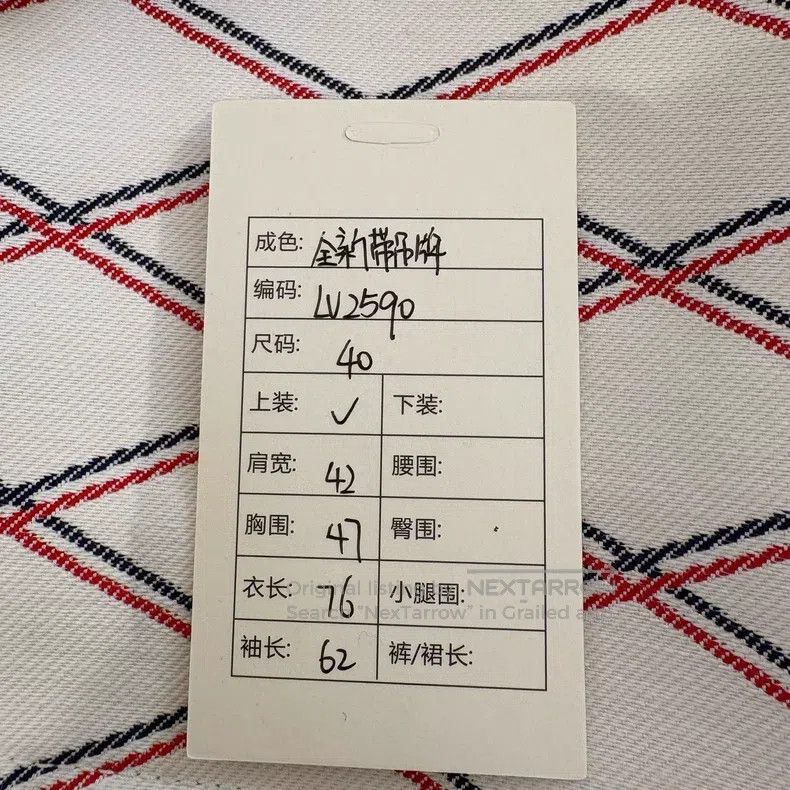 成色: 全新带吊牌
编码: LV2590
尺码: 40
上装: ✓ 下装:
肩宽: 42 腰围:
胸围: 47 臀围:
衣长: 76 小腿围:
Original listing NEXTARROW
Search "NexTarrow" in Grailed a
袖长: 62 裤/裙长: